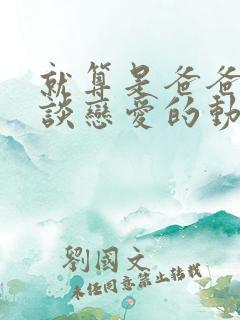 就算是爸爸
談戀愛的動
劉國文
未經同意禁止轉載